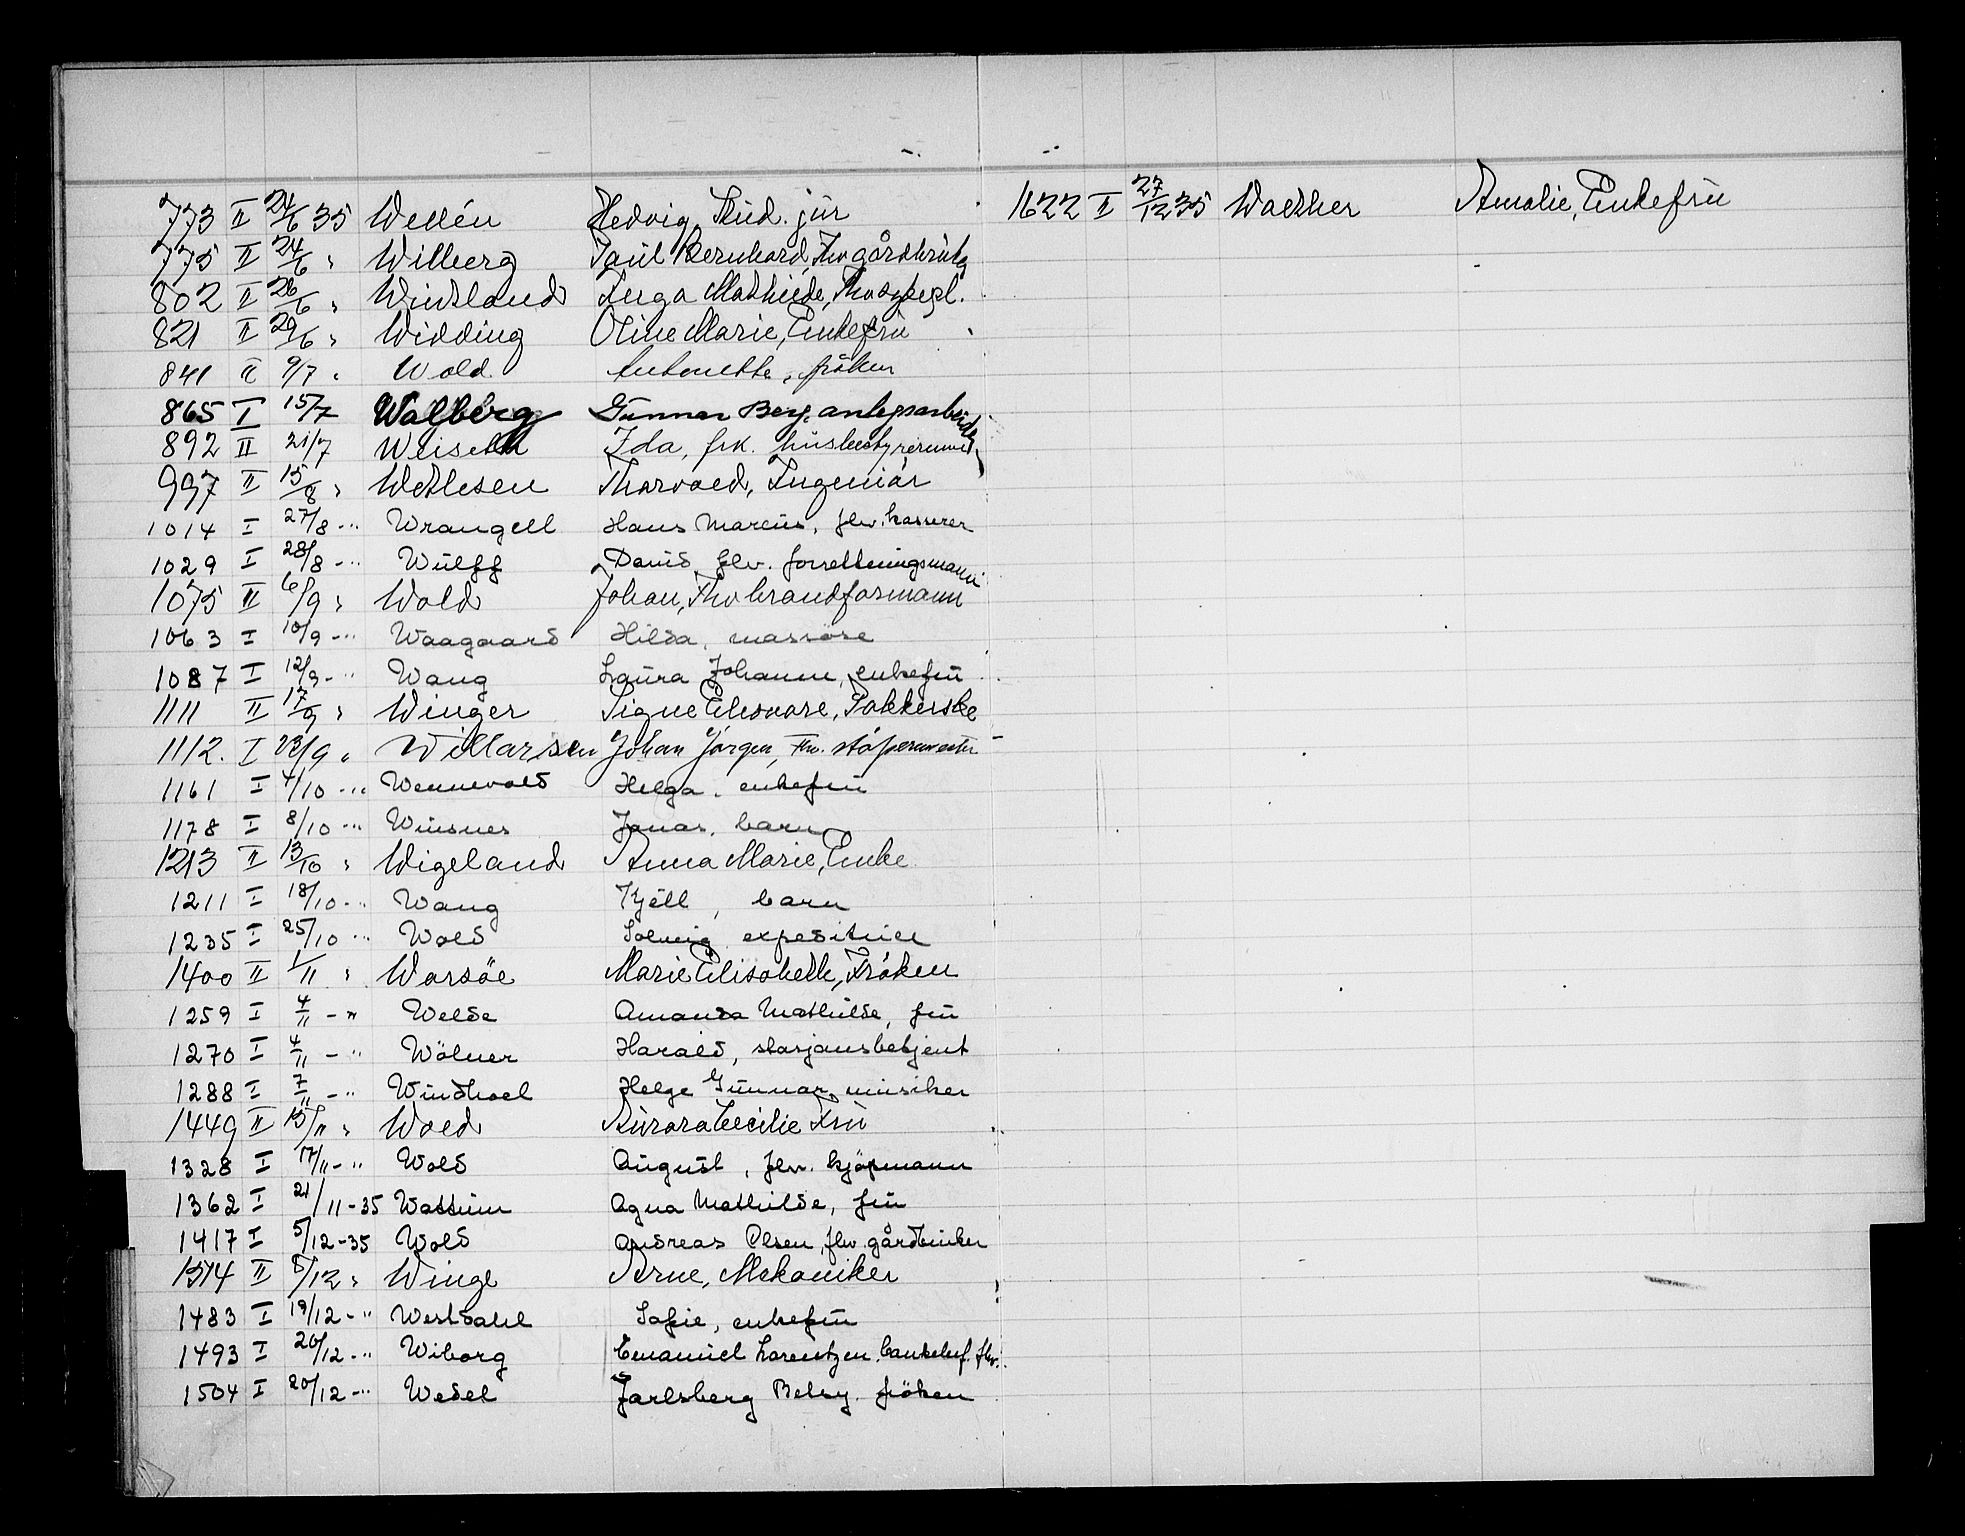 773 II 24/6 35 Wellén Hedvig, Stud. jur
775 II 24/6 " Wilberg Paul Bernhard, Fhv gårdbruker
802 II 26/6 " Windsland Inga Mathilde,
821 II 29/6 " Widding Oline Marie, Enkefru
841 II 9/7 " Wold Antonette, frøken
865 I 15/7 Walberg Gunnar Berg, anlegsarbeider
892 II 21/7 Weiseth Ida, frk. husbestyrerinne
997 II 15/8 " Wethesen Thorvald, Ingeniør
1014 I 27/8 - " Wrangell Hans Marcus, fhv. kasserer
1029 I 28/8 - " Wulff David, fhv. forretningsmann
1075 II 6/9 " Wold Johan, Fhv brandformann
1063 I 10/9 - " Waagaard Hilda, massøse
1087 I 12/9 - " Wang Laura Johanne, enkefru
1111 II 17/9 " Winger Signe Eleonore, Pakkerske
1112. I 23/9 " Willarsen Johan Jørgen, Fhv. støpermester
1161 I 4/10 - " Wennevold Helga, enkefru
1178 I 8/10 - " Winsnes Jonas, barn
1213 II 13/10 " Wigeland Anna Marie, Enke
1211 I 18/10 - " Wang Kjell, barn
1235 I 25/10 - " Wold Solveig expeditrice
1400 II 1/11 " Warsöe Marie Elisabeth, Frøken
1259 I 4/11 - " Welde Amanda Mathilde, fru
1270 I 4/11 - " Wölner Harald, stasjonsbetjent
1288 I 7/11 - " Windhoel Helge Gunnar, musiker
1449 II 15/11 " Wold Aurora Cecilie Fru
1328 I 17/11 - " Wold August, fhv. kjøpmann
1362 I 21/11-35 Wattum Agna Mathilde, fru
1417 I 5/12-35 Wold Andreas Olsen, fhv. gårdbruker
1514 II 5/12 " Winge Arne, Mekaniker
1483 I 19/12 - " Westdahl Sofie, enkefru
1493 I 20/12 - " Wiborg Emanuel Lorentzen, banksjef. fhv.
1504 I 20/12 - " Wedel Jarlsberg Betsy, frøken
1622 II 27/12 35 Walther Amalie, Enkefru